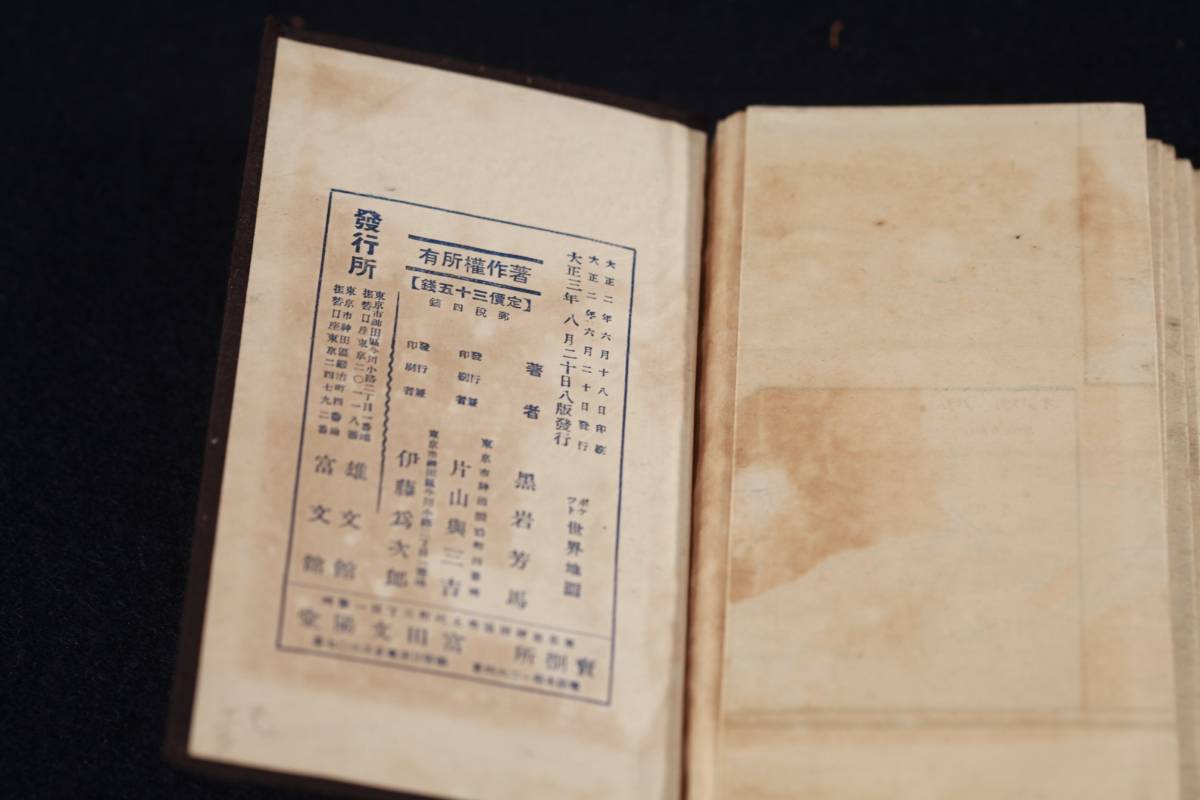 大正二年六月十八日印刷
大正二年六月二十日發行
大正三年八月二十日八版發行
ポケット世界地圖
著作權所有
【定價三十五錢】
郵稅四錢
著者 黑岩芳馬
發行兼印刷者 片山與三吉
發行兼印刷者 伊藤爲次郎
發行所
東京市神田區今川小路二丁目一番地
振替口座東京二〇一一八番
雄文館
東京市神田區鍛冶町四番地
振替口座東京二四七九二番
富文館
賣捌所 富田文陽堂